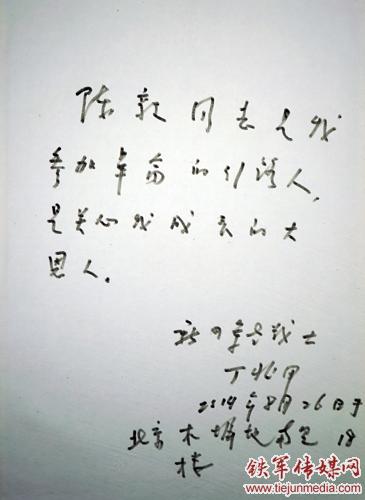 陈毅同志是我
参加革命的引路人，
是关心我成长的大
恩人。
新四军老战士
丁兆甲
2014年8月26日于
北京木樨地南里18
楼
铁军传媒网
www.tiejunmedia.com